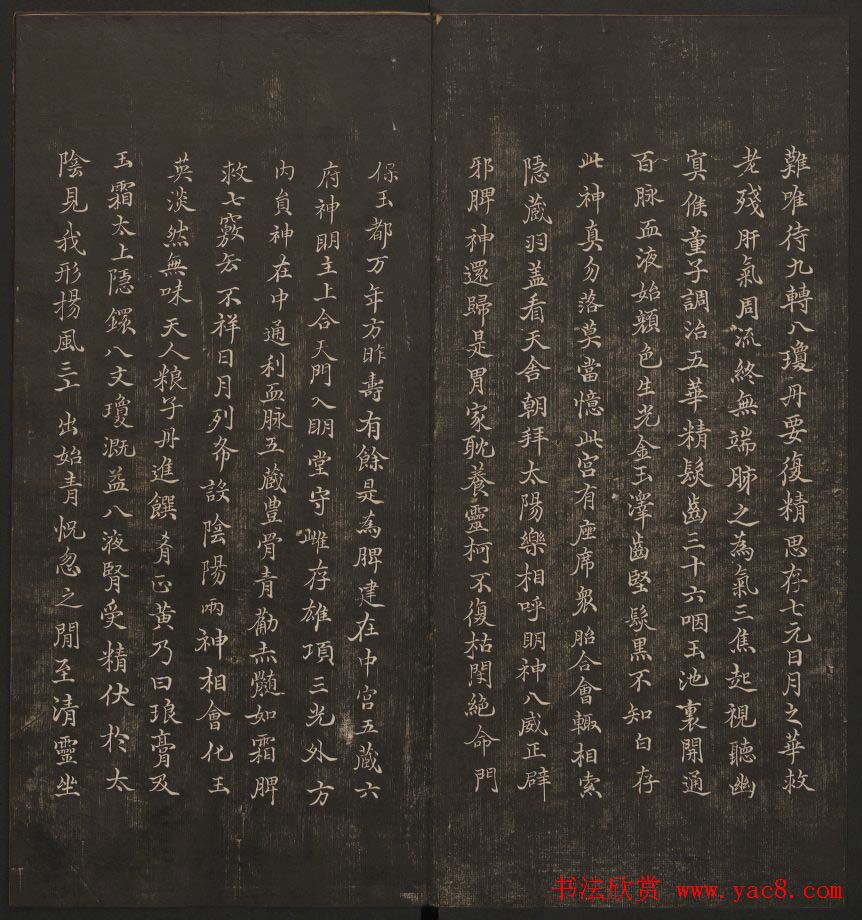 難唯待九轉八瓊丹要復精思存七元日月之華救
老殘肝氣周流終無端肺之為氣三焦起視聽幽
寘候童子調治五華精髮齒三十六咽玉池裏開通
百脉血液始顏色生光金玉澤齒堅髮黒不知白存
此神真勿落莫當憶此宮有座席衆胎合會輙相索
隠蔵羽盖看天舎朝拜太陽樂相呼明神八威正辟
邪脾神還歸是胃家耽養靈柯不復枯閉絕命門
保玉都万年方昨壽有餘是為脾建在中宮五蔵六
府神明主上合天門入明堂守雌存雄項三光外方
内負神在中通利血脉五蔵豊骨青勸赤髓如霜脾
救七竅去不祥日月列布設陰陽兩神相會化玉
英淡然無味天人粮子丹進饌肴正黄乃曰琅膏及
玉霜太上隠鐶八丈瓊溉益八液腎受精伏於太
陰見我形揚風三 出始青怳忽之間至清靈坐
书法欣赏 www.yac8.com